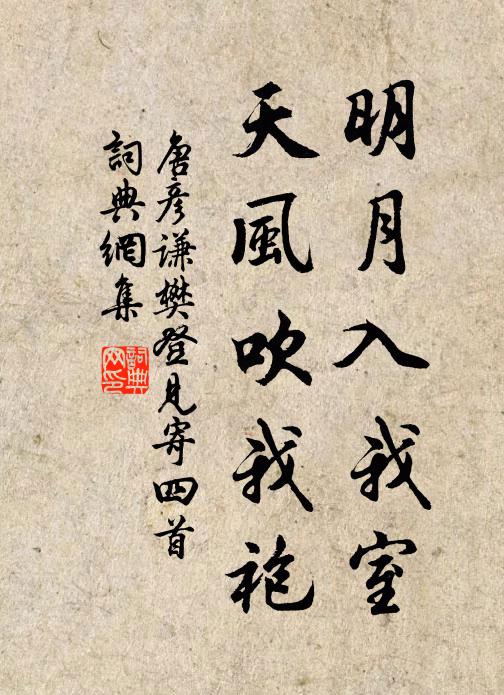 明月入我室
天風吹我袍
唐彥謙樊登見寄四首
詞典網集
詞典网印